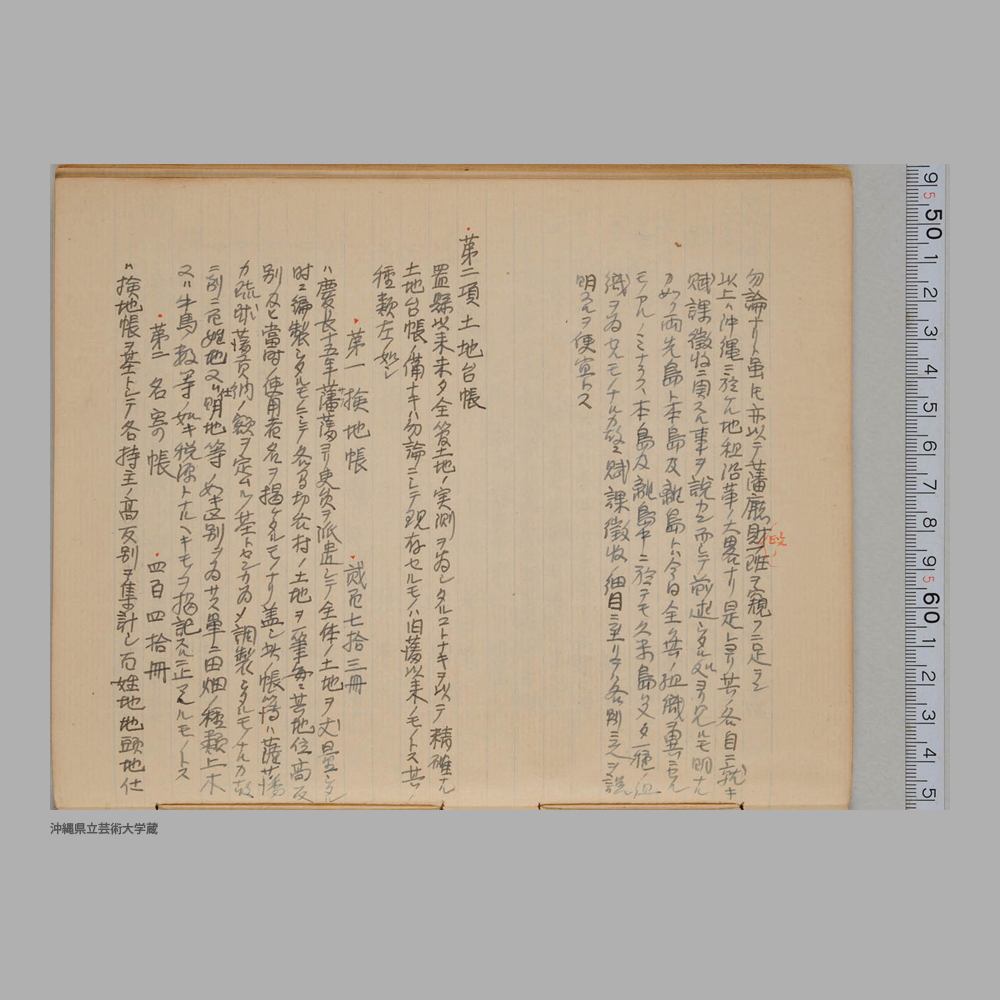 勿論ナリト虽𪜈亦以テ藩廳財政ノ一班ヲ窺フニ足ラン
以上ハ沖縄ニ於ケル地租沿革ノ大畧ナリ是ヨリ其ノ各自ニ就キ
賦課徴収ニ関スル事ヲ説カン而シテ前述シタル処ヨリ見ルモ明ナル
カ如ク両先島ト本島及離島トハ今日全然ノ組織ヲ異ニセル
モノアルノミナラス本島及離島中ニ於テモ久米島ハ又タ一種ノ組
織ヲ為セルモノナルカ故ニ賦課徴収ノ細目ニ至リテハ各別ニ之ヲ説
明スルヲ便宜トス
第二項 土地台帳
置縣以来未タ全管土地ノ実測ヲ為シタルコトナキヲ以テ精確ナル
土地台帳ノ備ナキハ勿論ニシテ現存セルモノハ旧藩以来ノモノトス其ノ
種類左ノ如シ
第一 検地帳 貳百七拾三冊
ハ慶長十五年薩藩ヨリ吏員ヲ派遣シテ全体ノ土地ヲ丈量シタル
時ニ編製シタルモノニシテ各間切各村ノ土地ヲ一筆毎ニ其地位高反
別及ヒ当時ノ使用者名ヲ掲ケタルモノナリ盖シ此ノ帳簿ハ薩藩
カ琉球藩貢納ノ額ヲ定ムルノ基トセンカ為メ調製シタルモノナルカ故
ニ別ニ百姓地又ハ仕明地等ノ如キ区別ヲ為サス単ニ田畑ノ種類上木
又ハ牛馬ノ数等ノ如キ税源トナルヘキモノヲ掲記スルニ止マルモノトス
第二 名寄帳 四百四拾冊
ハ検地帳ヲ基トシテ各持主ノ高反別ヲ集計シ百姓地地頭地仕
50 1 2 3 4 5 6 7 8 9 60 1 2 3 4 5
沖縄県立芸術大学蔵